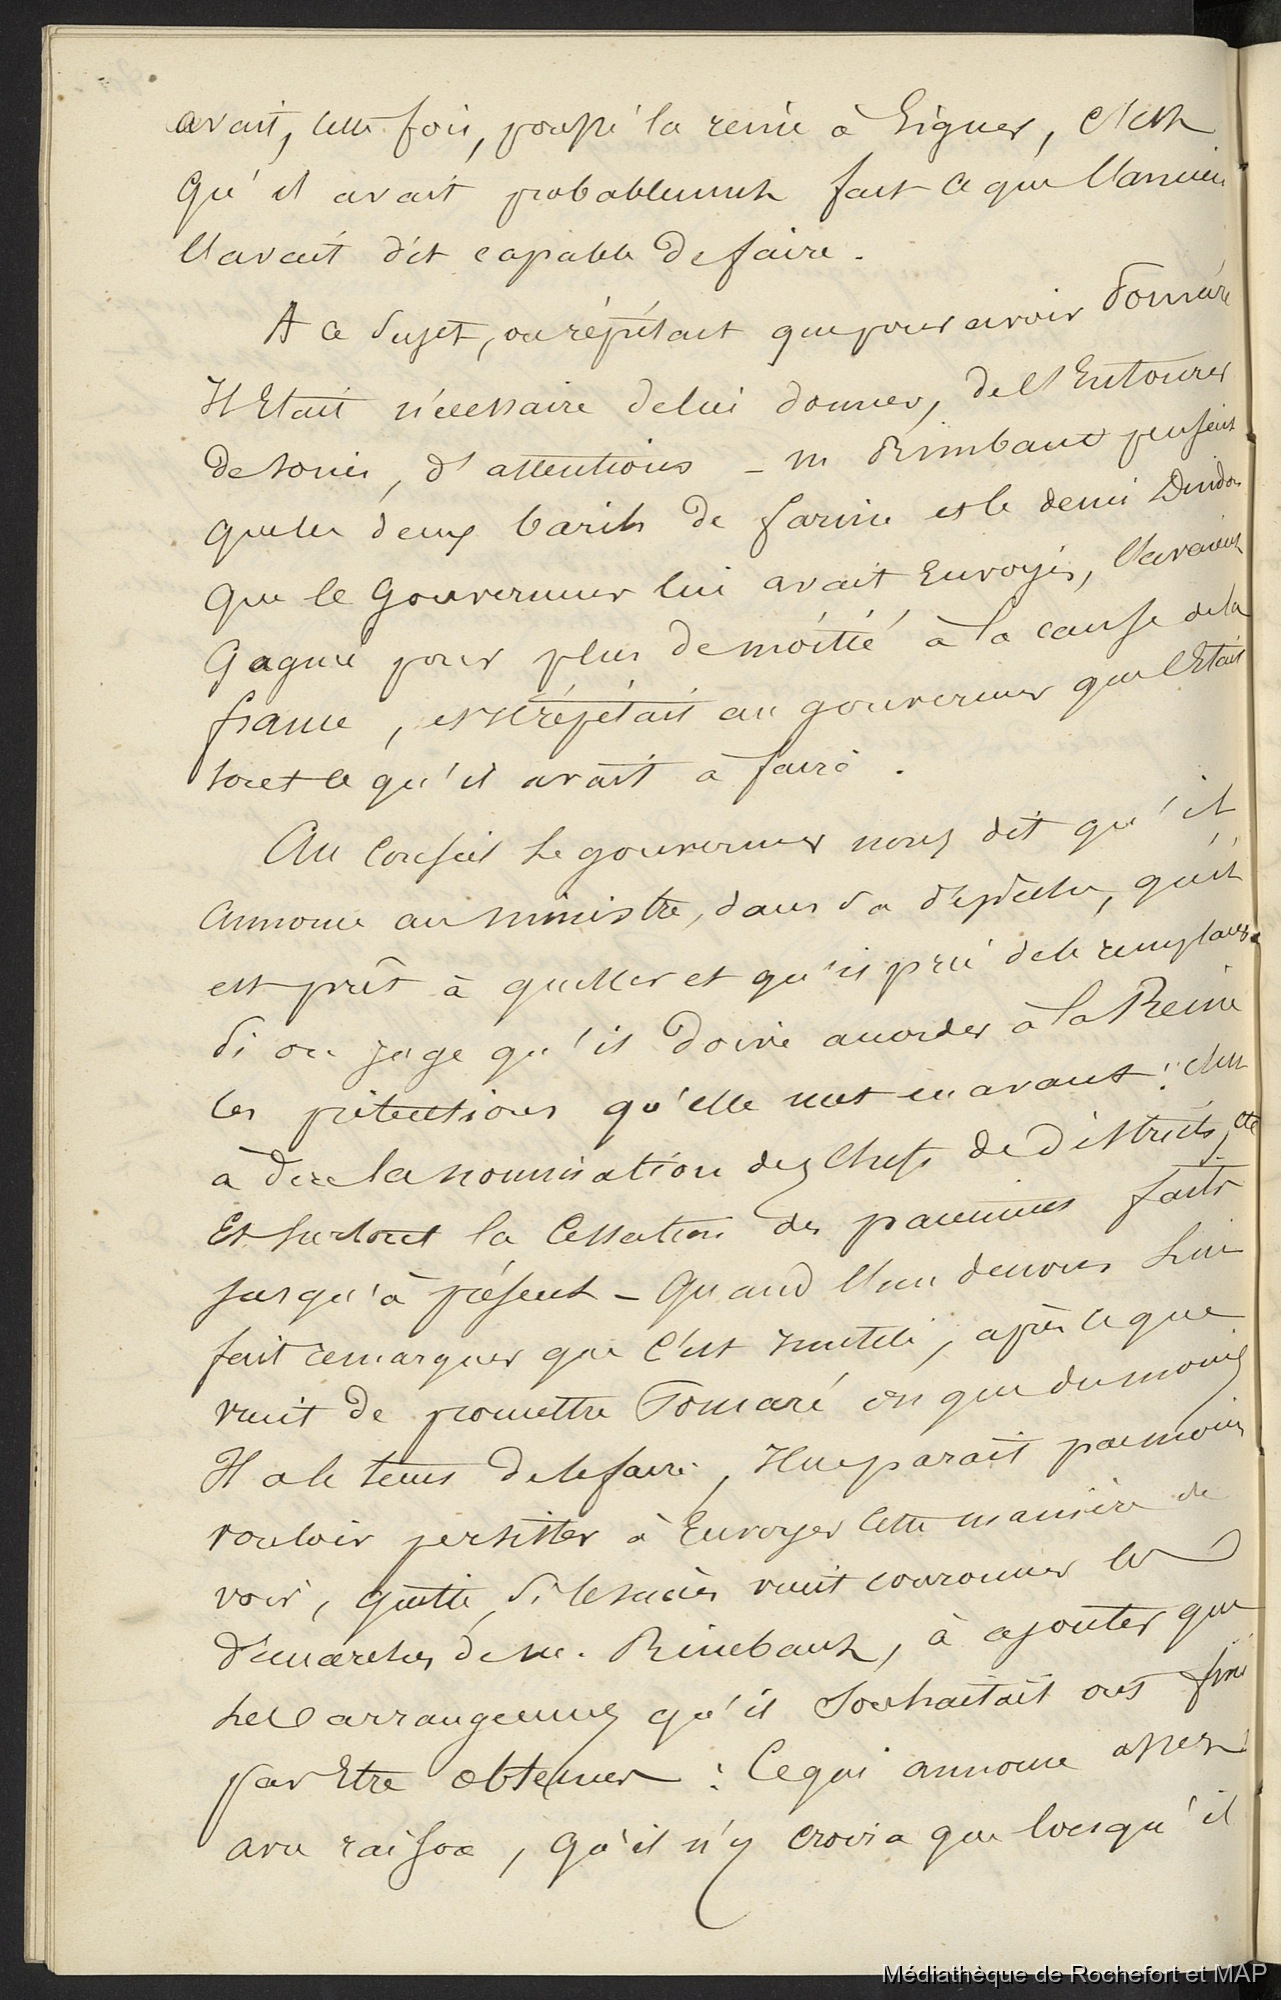 avait, cette fois, poussé la reine à Signer, C'est
Qu'il avait probablement fait ce que l'ancien
l'avait dit capable de faire.
A ce Sujet, on répétait que pour avoir Pomaré
Il Etait nécessaire de lui donner, de l'Entourer
de soins, d'attentions - m Rimbaut pensait
que les deux barils de farine et le demi Dindon
Que le Gouverneur lui avait Envoyés, l'avaient
Gagné pour plus de moitié à la cause de la
france, et il répétait au gouverneur que c'Etait
tout ce qu'il avait à faire.
Au Conseil Le gouverneur nous dit qu'il
Annonce au Ministre, dans Sa dépêche, qu'il
est prêt à quitter et qu'il prie de le remplacer
Si on juge qu'il Doive accorder à la Reine
les prétentions qu'elle met en avant : C'est
à dire la nomination des Chefs de Districts, etc
Et surtout la Cessation des paiements faits
jusqu'à présent - Quand l'un de nous Lui
fait remarquer que C'est Inutile, après ce que
vient de promettre Pomaré ou que du moins
Il a le tems de le faire, Il ne parait pas moins
vouloir persister à Envoyer Cette manière de
voir, quitte, Si le succès vient couronner les
Démarches de M. Rimbaut, à ajouter que
Les arrangemens qu'il Souhaitait ont fini
par Etre obtenus : Ce qui annonce assez
avec raison, Qu'il n'y Croira que lorsqu'il
Médiathèque de Rochefort et MAP